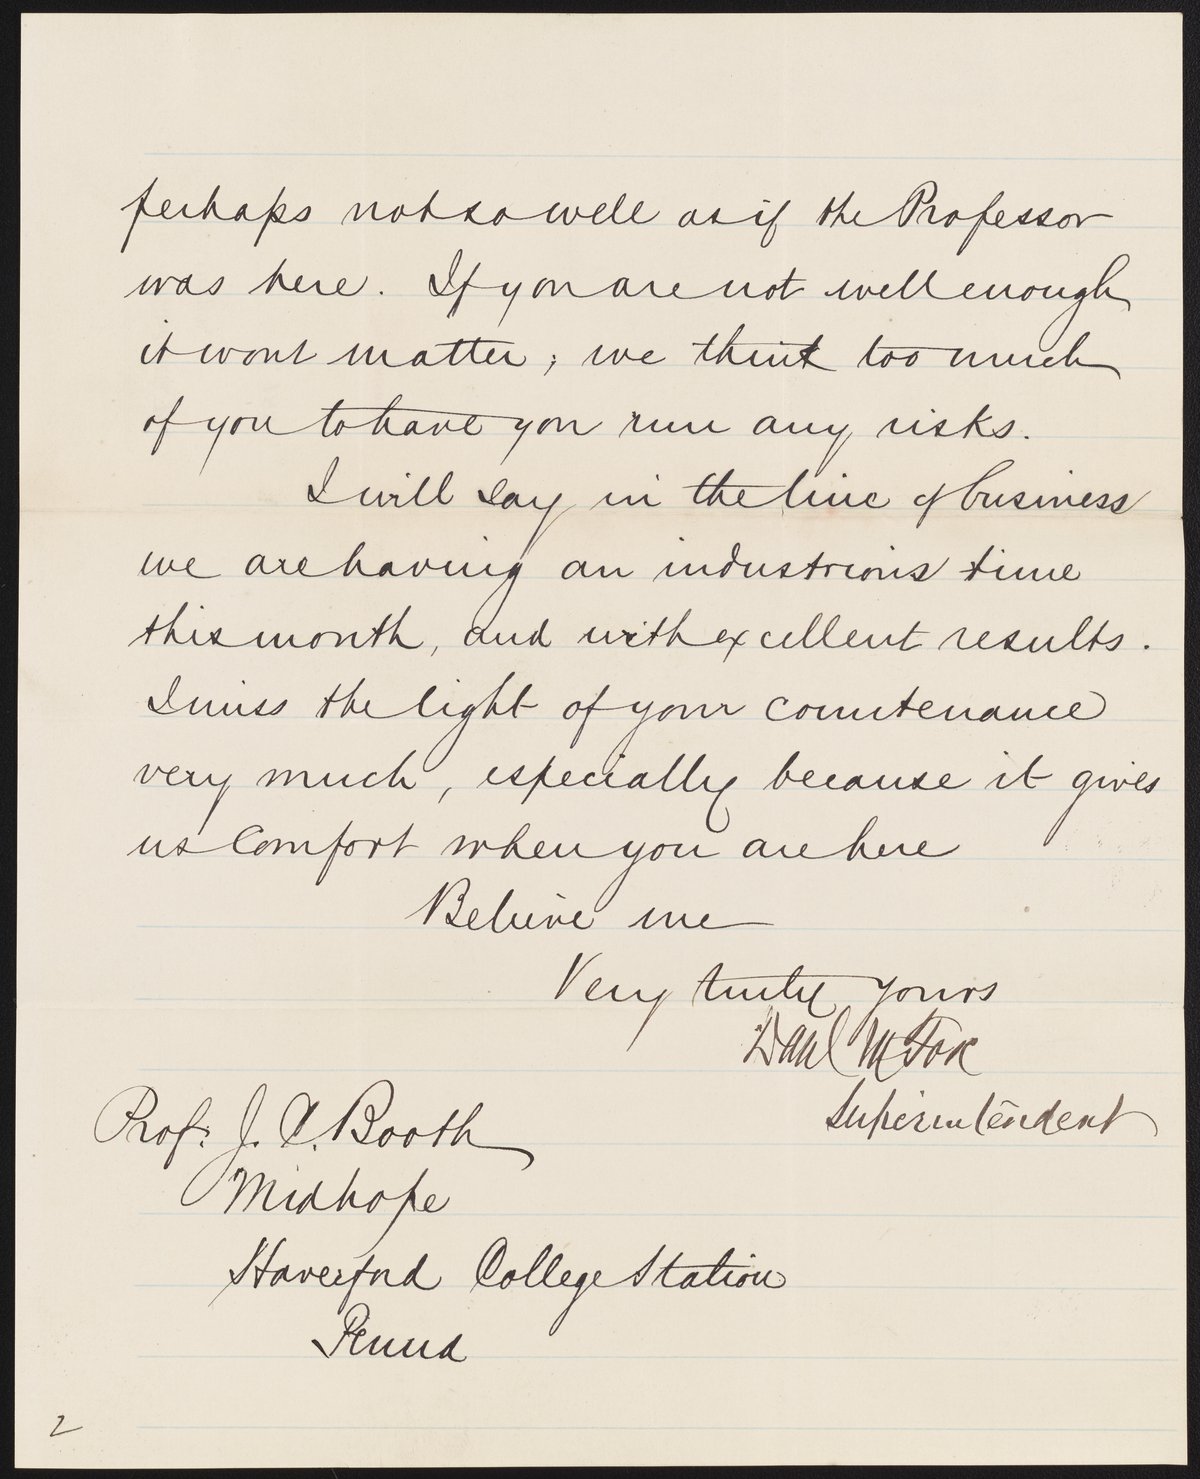 perhaps not so well as if the Professor
was here. If you are not well enough
it wont matter; we think too much
of you to have you run any risks.
I will say in the line of business
we are having an industrious time
this month, and with excellent results.
I miss the light of your countenance
very much, especially because it gives
us comfort when you are here
Believe me
Very truly yours
Danl M Fox
Superintendent
Prof. J. C. Booth
Midhope
Haverford College Station
Penna
2